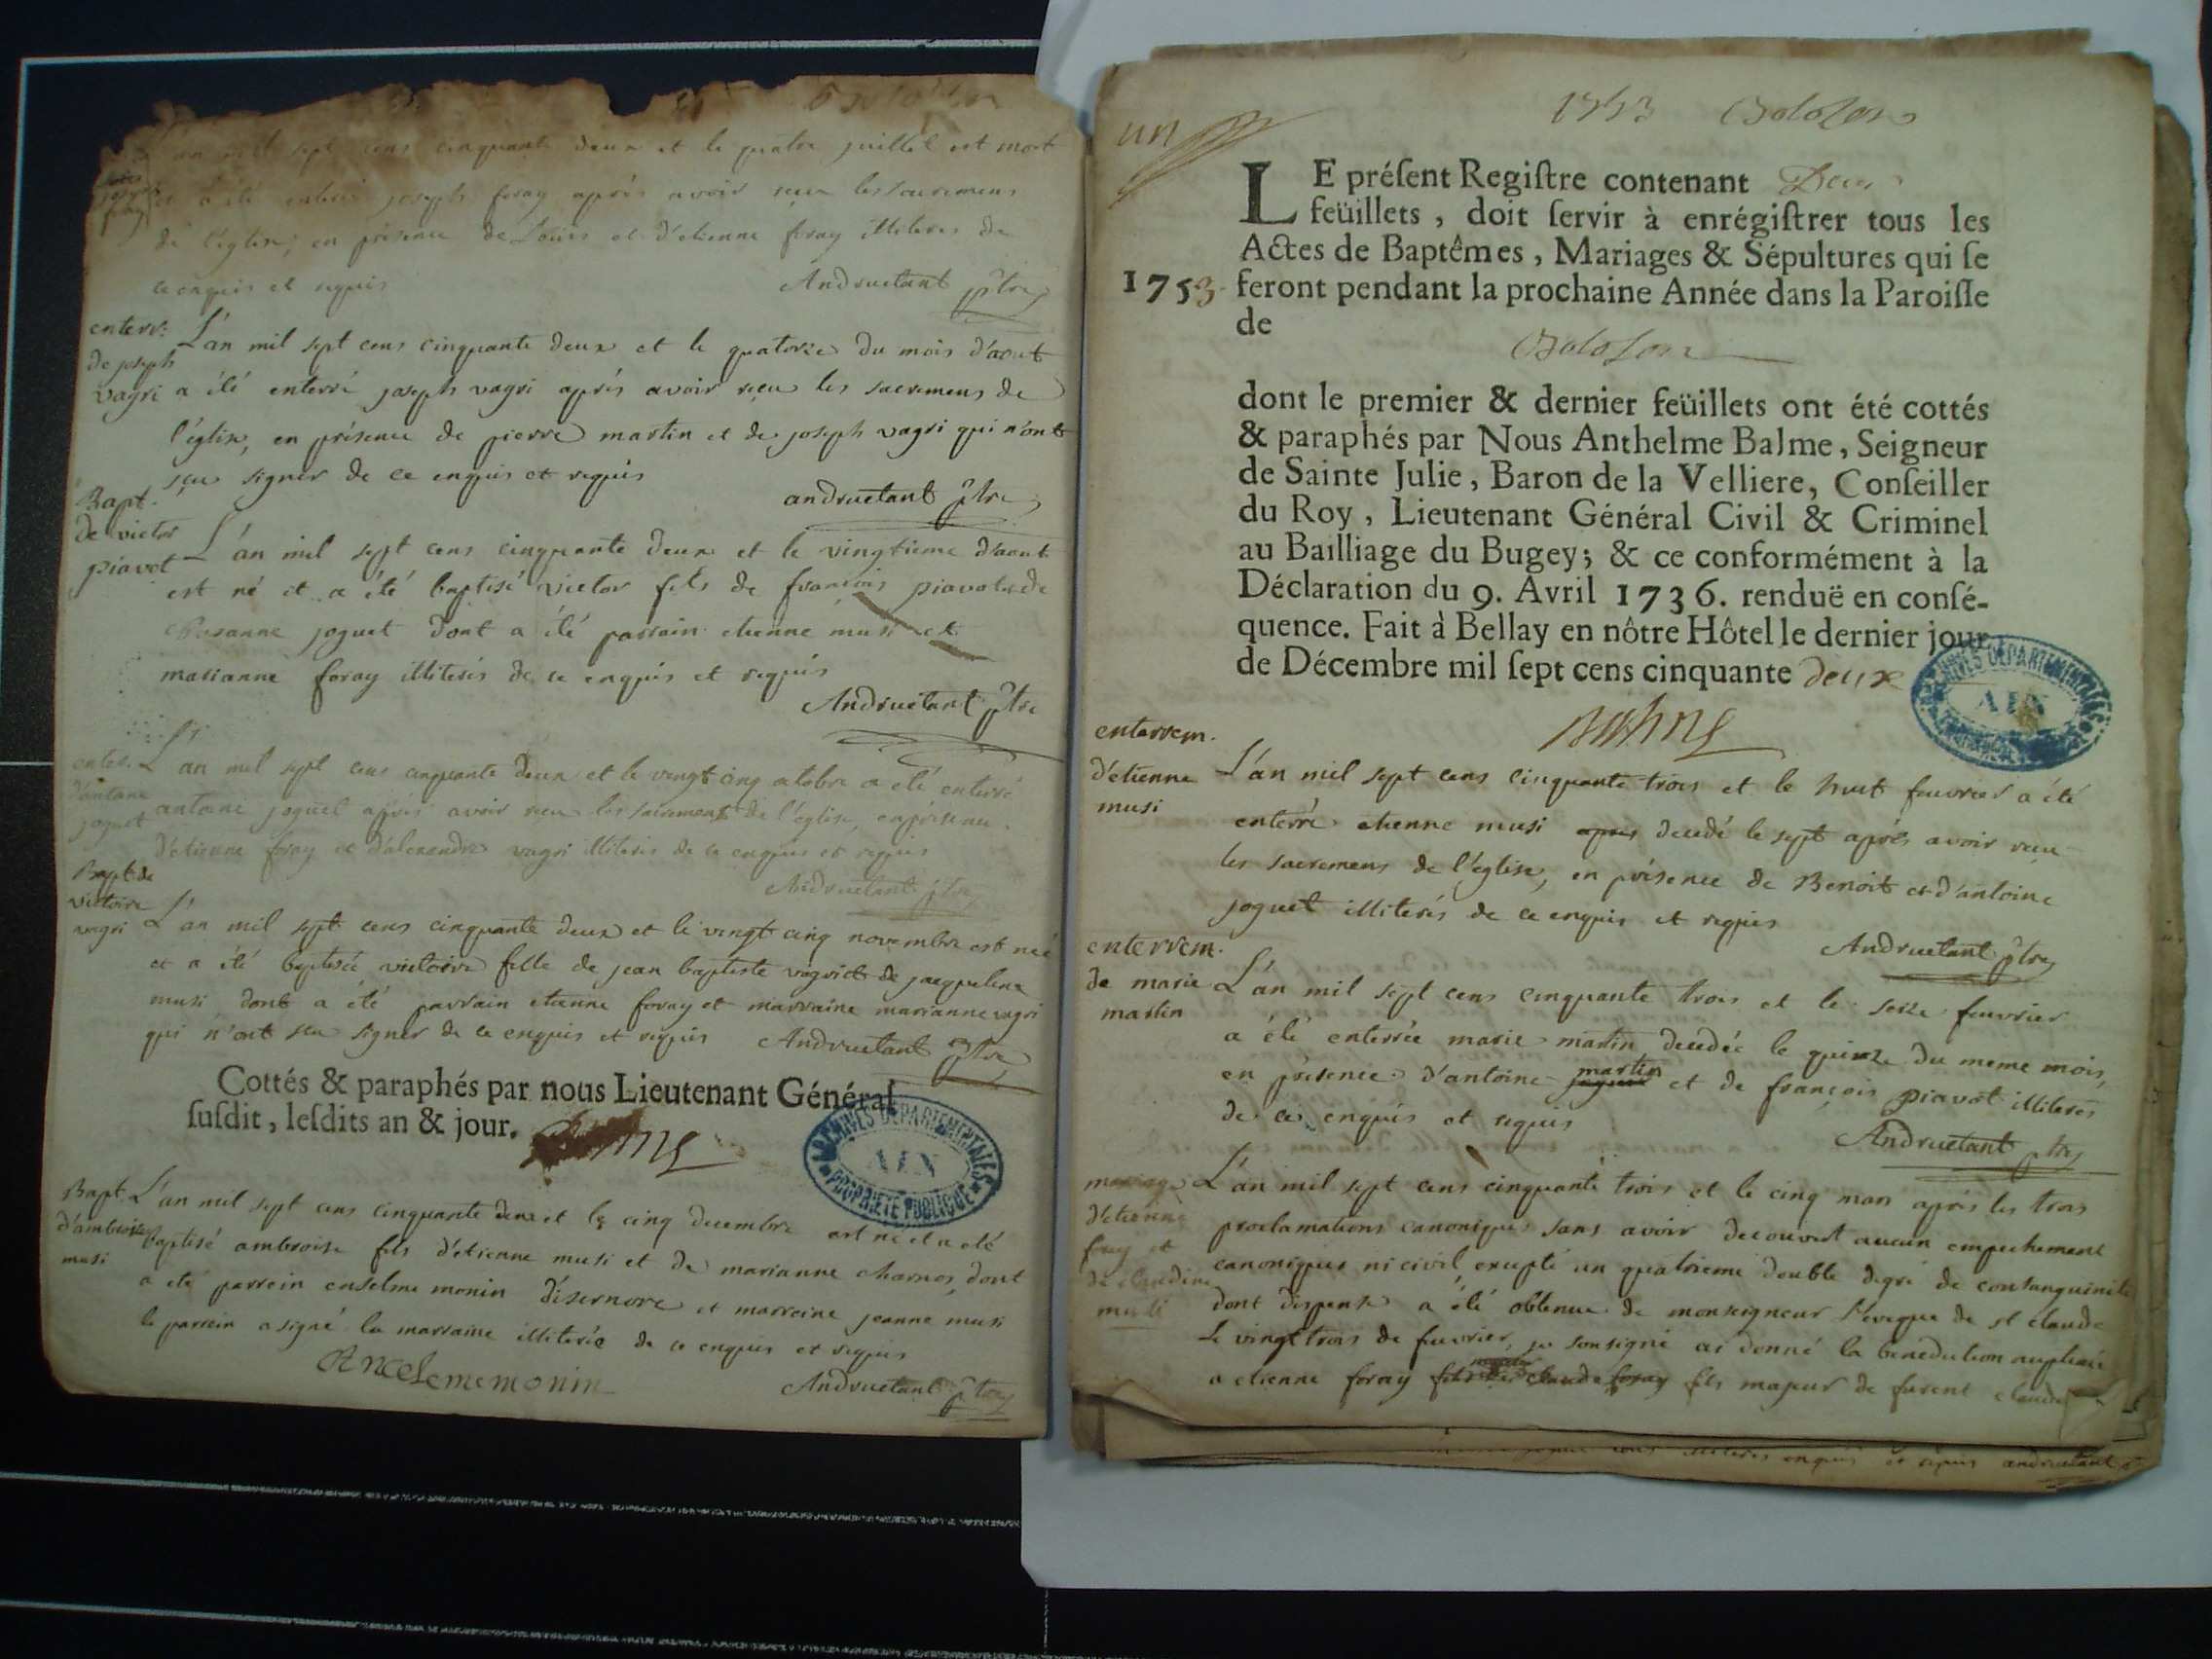 L'an mil sept cens cinquante deux et le quatre juillet est mort
et a été enterré joseph foray aprés avoir reçu les sacremens
de l'église, en présence de Louis et d'etienne foray illiterés de
ce enquis et requis
Andruetant ptre
enterr. de joseph vagri
L'an mil sept cens cinquante deux et le quatorze du mois d'aout
a été enterré joseph vagri aprés avoir reçu les sacremens de
l'église, en présence de pierre martin et de joseph vagri qui n'ont
sçu signer de ce enquis et requis
andruetant ptre
Bapt. de victor piavot
L'an mil sept cens cinquante deux et le vingtieme d'aout
est né et a été baptisé victor fils de françois piavot et de
Susanne joguet dont a été parrain etienne musi et
marianne foray illiterés de ce enquis et requis
Andruetant ptre
enter. d'antoine joguet
L'an mil sept cens cinquante deux et le vingt cinq octobre a été enterré
antoine joguet aprés avoir reçu les sacremens de l'église, en présence
d'etienne foray et d'alexandre vagri illiterés de ce enquis et requis
Andruetant ptre
Bapt. de victoire vagri
L'an mil sept cens cinquante deux et le vingt cinq novembre est née
et a été baptisée victoire fille de jean baptiste vagri et de jacqueline
musi dont a été parrain etienne foray et marraine marianne vagri
qui n'ont sçu signer de ce enquis et requis Andruetant ptre
Cottés & paraphés par nous Lieutenant Général
susdit, lesdits an & jour.
ARCHIVES DÉPARTEMENTALES
AIN
PROPRIÉTÉ PUBLIQUE
Bapt. d'ambroise musi
L'an mil sept cens cinquante deux et le cinq decembre est né et a été
baptisé ambroise fils d'etienne musi et de marianne charnos, dont
a été parrein enselme monin d'isernore et marreine jeanne musi
le parrein a signé la marraine illiterée de ce enquis et requis
Ancelememonin
Andruetant ptre
1753 Bolozon
un
LE présent Registre contenant Deux
feüillets, doit servir à enrégistrer tous les
Actes de Baptêmes, Mariages & Sépultures qui se
1753 feront pendant la prochaine Année dans la Paroisse
de
Bolozon
dont le premier & dernier feüillets ont été cottés
& paraphés par Nous Anthelme Balme, Seigneur
de Sainte Julie, Baron de la Velliere, Conseiller
du Roy, Lieutenant Général Civil & Criminel
au Bailliage du Bugey; & ce conformément à la
Déclaration du 9. Avril 1736. renduë en consé-
quence. Fait à Bellay en nôtre Hôtel le dernier jour
de Décembre mil sept cens cinquante deux
ARCHIVES DÉPARTEMENTALES
AIN
enterrem. d'etienne musi
L'an mil sept cens cinquante trois et le huit feuvrier a été
enterré etienne musi apres decedé le sept aprés avoir reçu
les sacremens de l'église, en présence de Benoit et d'antoine
joguet illiterés de ce enquis et requis
Andruetant ptre
enterrem. de marie martin
L'an mil sept cens cinquante trois et le seize feuvrier
a été enterrée marie martin decedée le quinze du meme mois,
en présence d'antoine joguet martin et de françois piavot illiterés
de ce enquis et requis
Andruetant ptre
mariage d'etienne foray et de claudine musi
L'an mil sept cens cinquante trois et le cinq mars aprés les trois
proclamations canoniques sans avoir decouvert aucun empechement
canonique ni civil, excepté un quatrieme double degré de consanguinité
dont dispense a été obtenue de monseigneur l'eveque de st claude
le vingt trois de feuvrier, je soussigné ai donné la benediction nuptiale
a etienne foray fils de claude foray fils majeur de furent claude
illiterés enquis et requis andruetant